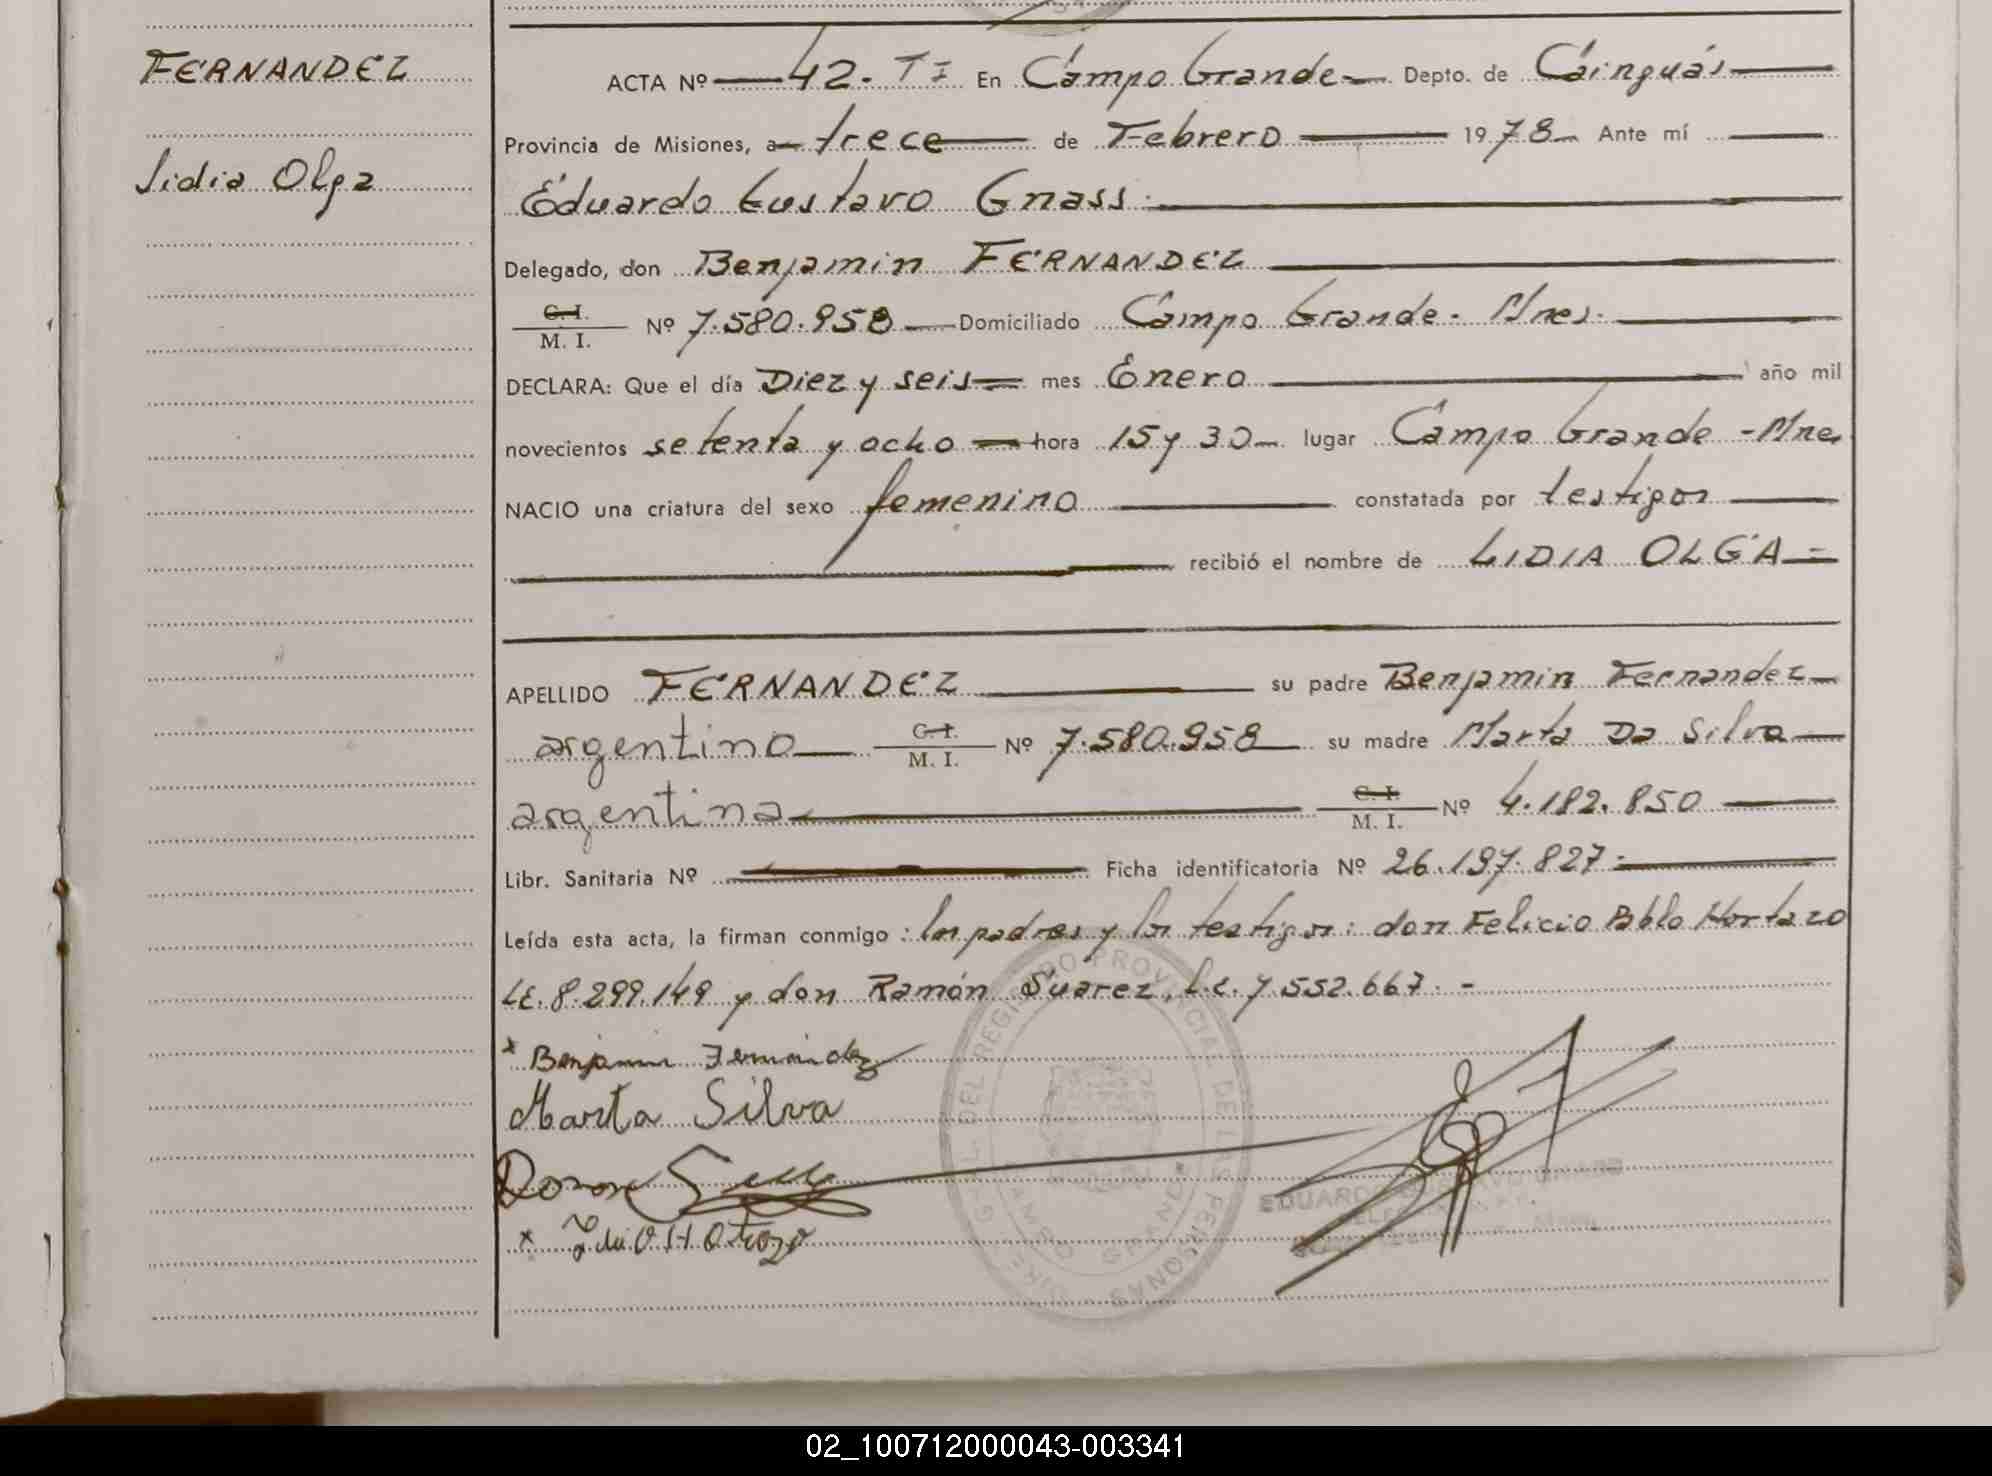 FERNANDEZ
Lidia Olga
ACTA Nº 42. TI En Campo Grande Depto. de Cainguás
Provincia de Misiones, a trece de Febrero 1978 Ante mí
Eduardo Gustavo Gnass.
Delegado, don Benjamin FERNANDEZ
C. I.
M. I. Nº 7.580.958 Domiciliado Campo Grande. Mnes.
DECLARA: Que el día Diez y seis mes Enero año mil
novecientos setenta y ocho hora 15 y 30 lugar Campo Grande - Mnes
NACIO una criatura del sexo femenino constatada por testigos
recibió el nombre de LIDIA OLGA
APELLIDO FERNANDEZ su padre Benjamin Fernandez
argentino C. I.
M. I. Nº 7.580.958 su madre Marta Da Silva
argentina C. I.
M. I. Nº 4.182.850
Libr. Sanitaria Nº Ficha identificatoria Nº 26.197.827.
Leída esta acta, la firman conmigo: los padres y los testigos: don Felicio Pablo Hortazo
LE. 8.299.149 y don Ramón Suarez, L.E. 7.552.667. -
x Benjamin Fernandez
Marta Silva
DIRE GRAL. DEL REGISTRO PROVINCIAL DE LAS PERSONAS
CAMPO GRANDE
EDUARDO GUSTAVO GNASS
02_100712000043-003341